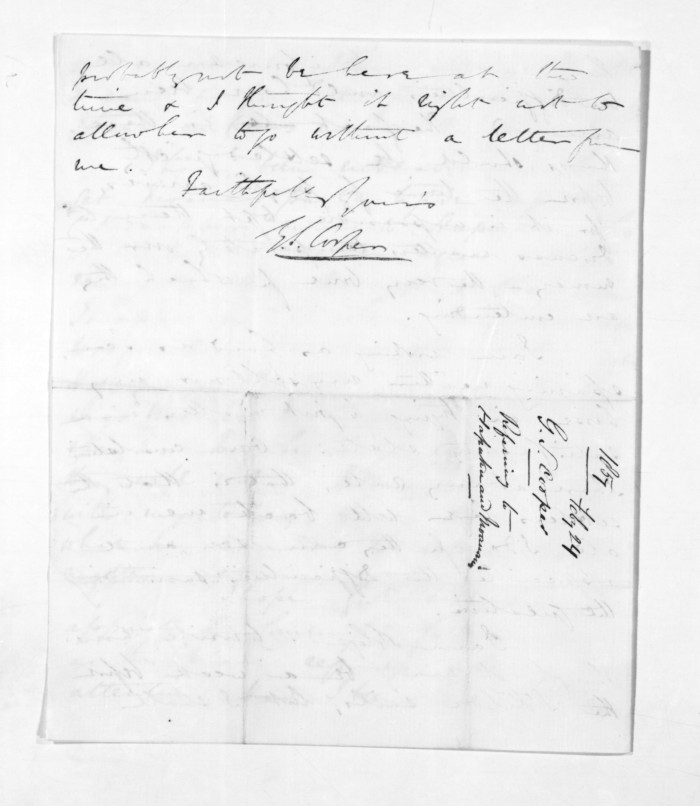 probably not be here at the
time & I thought it right not to
allow her to go without a letter from
me.
Faithfully yours
G.S. Cooper
1857
Feby 24
G. S. Cooper
Refering to
Hapuku and Moananui